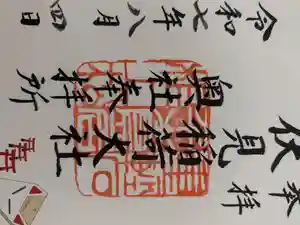 奉拝
伏見
稲荷大社
奥社奉拝所
令和七年八月四日